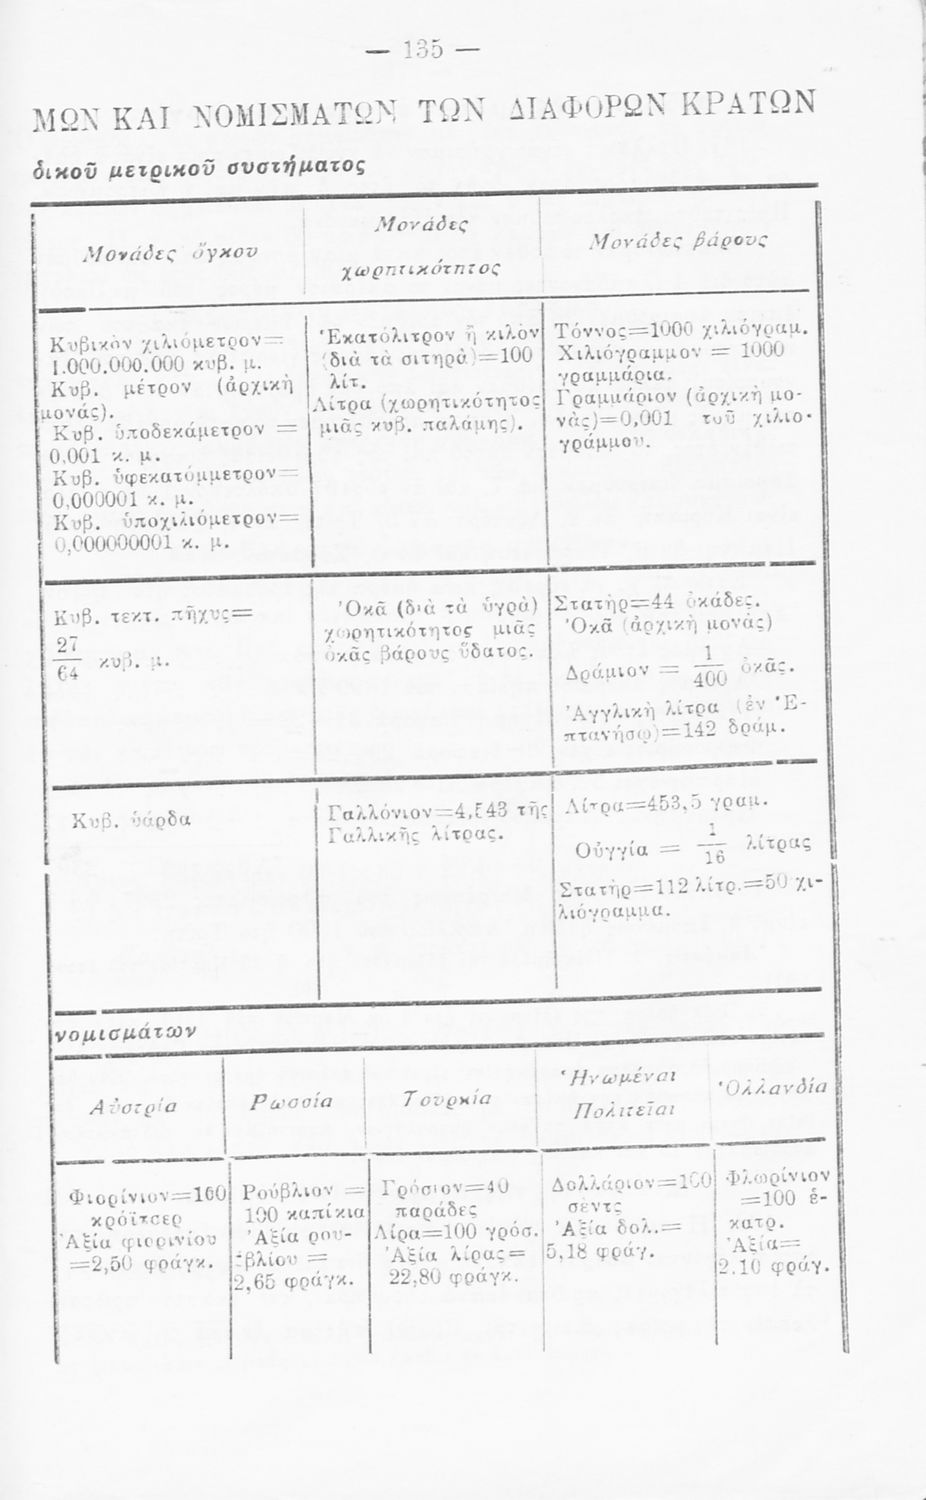 — 135 —
ΜΩΝ ΚΑΙ ΝΟΜΙΣΜΑΤΩΝ ΤΩΝ ΔΙΑΦΟΡΩΝ ΚΡΑΤΩΝ
δικοῦ μετρικοῦ συστήματος
Μονάδες ὄγκου
Μονάδες
χωρητικότητος
Μονάδες βάρους
Κυβικὸν χιλιόμετρον=
1.000.000.000 κυβ. μ.
Κυβ. μέτρον (ἀρχικὴ
μονάς).
Κυβ. ὑποδεκάμετρον =
0,001 κ. μ.
Κυβ. ὑφεκατόμμετρον=
0,000001 κ. μ.
Κυβ. ὑποχιλιόμετρον=
0,000000001 κ. μ.
Ἑκατόλιτρον ἢ κιλὸν
(διὰ τὰ σιτηρὰ)=100
λίτ.
Λίτρα (χωρητικότητος
μιᾶς κυβ. παλάμης).
Τόννος=1000 χιλιόγραμ.
Χιλιόγραμμον = 1000
γραμμάρια.
Γραμμάριον (ἀρχικὴ μο-
νὰς)=0,001 τοῦ χιλιο-
γράμμου.
Κυβ. τεκτ. πῆχυς=
27
64 κυβ. μ.
Ὀκᾶ (διὰ τὰ ὑγρὰ)
χωρητικότητος μιᾶς
ὀκᾶς βάρους ὕδατος.
Στατὴρ=44 ὀκάδες.
Ὀκᾶ (ἀρχικὴ μονὰς)
Δράμιον = 1
400 ὀκᾶς.
Ἀγγλικὴ λίτρα (ἐν Ἑ-
πτανήσῳ)=142 δράμ.
Κυβ. ὑάρδα
Γαλλόνιον=4,543 τῆς
Γαλλικῆς λίτρας.
Λίτρα=453,5 γραμ.
Οὐγγία = 1
16 λίτρας
Στατὴρ=112 λίτρ.=50 χι-
λιόγραμμα.
νομισμάτων
Αὐστρία
Ρωσσία
Τουρκία
Ἡνωμέναι
Πολιτεῖαι
Ὁλλανδία
Φιορίνιον=100
κρόϊτσερ
Ἀξία φιορινίου
=2,50 φράγκ.
Ρούβλιον =
100 καπίκια
Ἀξία ρου-
βλίου =
2,65 φράγκ.
Γρόσιον=40
παράδες
Λίρα=100 γρόσ.
Ἀξία λίρας=
22,80 φράγκ.
Δολλάριον=100
σέντς
Ἀξία δολ.=
5,18 φράγ.
Φλωρίνιον
=100 ἑ-
κατρ.
Ἀξία=
2.10 φράγ.